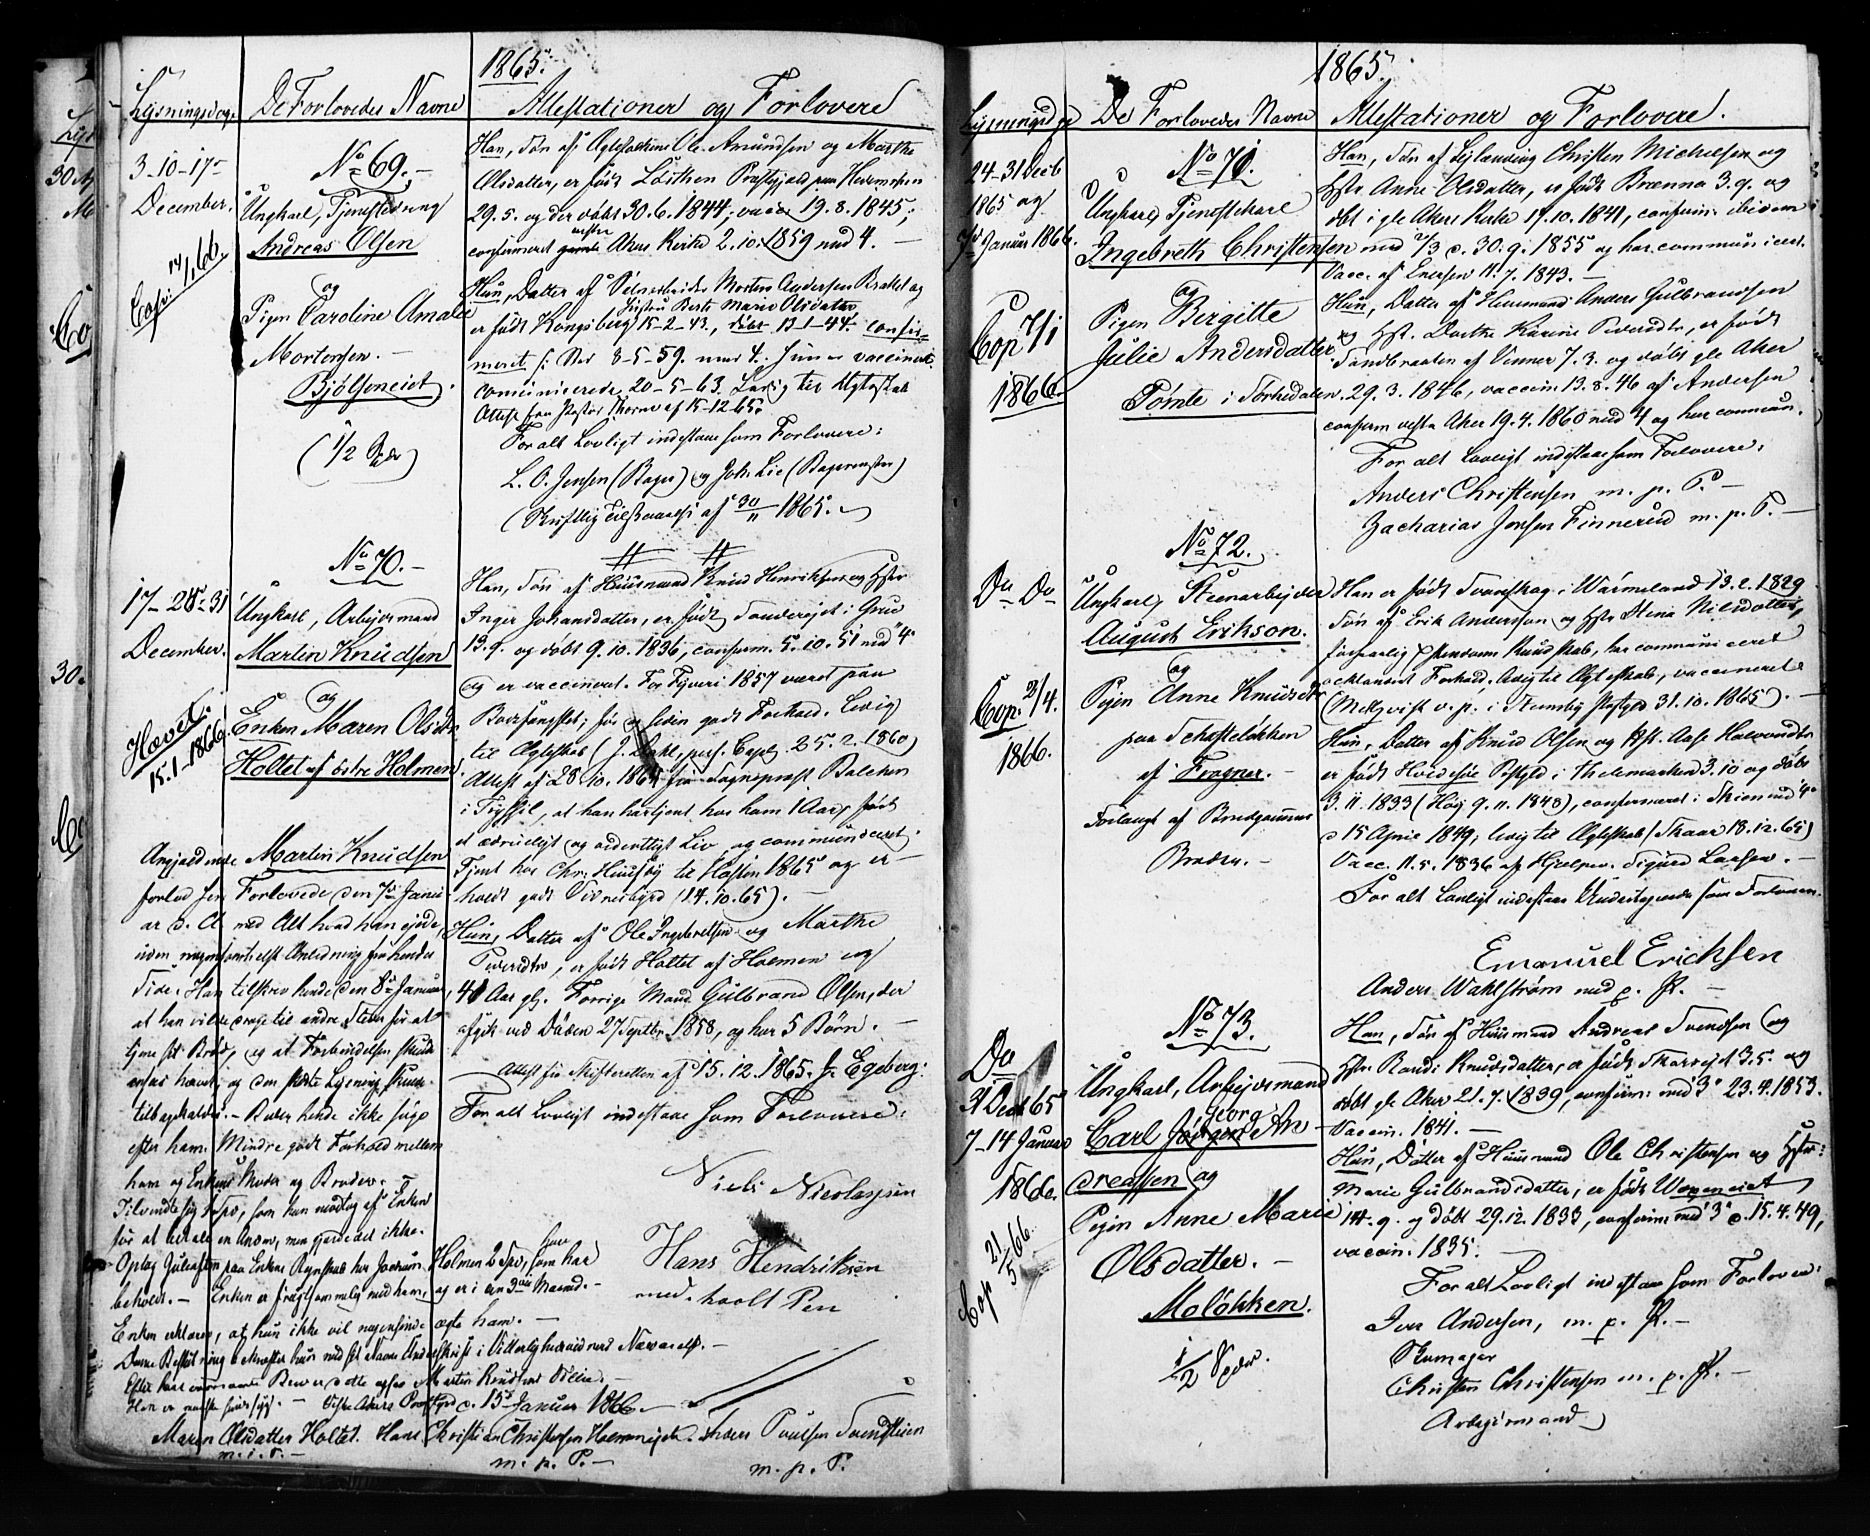 1865.
Lysningsdage
De Forlovedes Navne
Attestationer og Forlovere
3-10-17de
December.
Cop: 14/1 66.
No 69.
Ungkarl, Tjenestedreng
Andreas Olsen
og
Pigen Caroline Amalie
Mortensen.
Bjølseneiet.
(1/2 Spdr)
Han, Søn af Ægtefolkene Ole Amundsen og Marthe
Olsdatter, er født Løithen Præstegjeld paa Hedemarken
29.5. og der døbt 30.6.1844; vacc. 19.8.1845;
confirmeret gamle vestre Akers Kirke 2.10.1859 med 4.
Hun, Datter af Morten Andersen Brakel og
Hustru Berte Marie Olsdatter
er født Kongsberg 15-2-43, døbt 13-1-44. confir-
meret 8-5-59. med 4. vaccineret
communicerede 20-5-63. Ledig til Ægteskab
Attest fra Pastor Thorne af 15-12-65.
For alt Lovligt indestaae som Forlovere:
L. O. Jensen (Bager) og Joh. Lie (Bagermester)
(Skriftlig af 30/11 1865.
17-25-31
December.
Hævet.
15.1-1866.
No 70.
Ungkarl, Arbejdsmand
Martin Knudsen
og
Enken Maren Olsdtr
Holtet af østre Holmen.
Han, Søn af Huusmand Knud Henriksen og Hstr
Inger Johansdatter, er født Sanderejet i Grue
13.9. og døbt 9.10.1836, confirm. 5.10.51 med "4"
og er vaccineret. For Tyveri 1857 været paa
Bodsfængslet; før og siden godt Forhold. Ledig
til Ægteskab (J. Dahl, pers. Capl. 25.2.1860)
Attest af 28.10.1864 fra Sognepræst Balchen
i Trysil, at han har tjent hos ham 1 Aar, ført
et ædrueligt og ordentligt Liv og communiceret.
Tjent hos Chr. Huusby til Høsten 1865 og er-
holdt godt Vidnesbyrd (14.10.65).
Hun, Datter af Ole Ingebretsen og Marthe
Pedersdtr, er født Holtet af Holmen og
41 Aar gl. Forrige Mand Gulbrand Olsen, der
afgik ved Døden 27 Septbr. 1858, og har 5 Børn.
Attest fra Skifteretten af 15.12.1865. J. Egeberg.
For alt Lovligt indestaae som Forlovere:
Niels Nicolaysen
Hans Hendriksen
med holt Pen
Angjældende Martin Knudsen
forlod sin Forlovede den 7de Janu-
ar d. A. med Alt hvad han ejede,
uden nogensomhelst Anledning fra hendes
Side. Han tilskrev hende den 8de Januar,
at han vilde drage til andre Steder for at
tjene sit Brød, og at Forbindelsen skulde
ansees hævet, og den sidste Lysning skulde
tilbagekaldes. - Beder hende ikke søge
efter ham. Mindre godt Forhold mellem
ham og Enkens Moder og Broder.
Tilvendte sig 7 Spd, som han modtog af Enken
for at betale en Anden, men gjorde det ikke.
Optog Gulasten paa Enkens Regnskab hos Joachim Holmen 2 Spd, som han har
beholdt. - Enken er frugtsommelig med ham, og er i den 3die Maaned.
Enken erklærer, at hun ikke vil nogensinde ægte ham. -
Denne Beslutning bekræfter hun med sit Navns Underskrift i Vitterlighedsvidners Nærværelse.
Vestre Akers Præstegd d. 15de Januar 1866.
Maren Olsdatter Holtet. Hans Christian Christensen Holmenejet. Anders Paulsen Svendstuen
m. p. P. m. p. P.
1865.
Lysningsdage
De Forlovedes Navne
Attestationer og Forlovere.
24-31 Decb
1865 og
7de Januar 1866.
Cop 7/1
1866.
No 71.
Ungkarl, Tjenestekarl
Ingebreth Christensen
og
Pigen Birgitte
Julie Andersdatter
Tømte i Sørkedalen.
Han, Søn af Christen Michelsen og
Hstr Anne Olsdatter, er født Brenna 3.9. og
døbt i gle Akers Kirke 17.10.1841, confirm. ibidem
med 2/3 d. 30.9.1855 og har communiceret.
Vacc. af Enersen 11.7.1843.
Hun, Datter af Huusmand Anders Gulbrandsen
og Hst. Dorthe Karine Pedersdtr, er født
Sandbraaten af Vinner 7.3. og døbt gle Aker
29.3.1846, vaccin. 13.8.46 af Andersen
confirm. vestr. Aker 19.4.1860 med 4 og har commun.
For alt Lovligt indestaae som Forlovere:
Anders Christensen m. p. P.
Zacharias Jensen Finnerud m. p. P.
Do Do
Cop. 2/4.
1866.
No 72.
Ungkarl, Steenarbejder
August Erikson.
og
Pigen Anne Knudsdtr
paa Schafteløkken
af Frogner.
Forlangt af Brudgommens
Broder.
Han er født Svanskog i Wärmeland 13.2.1829
Søn af Erik Andersson og Hstr Stina Nilsdotter,
forsvarlig Christendoms Kundskab, har communiceret
ochlanderet Forhold, ledig til Ægteskab, vaccineret
(Mellqvist v. p. i 31.10.1865).
Hun, Datter af Knud Olsen og Hst. Aase Halvorsdtr
er født Hvidesøe Præstgjd i Thelemarken 3.10 og døbt
3.11.1833 (Høj 9.11.1843), confirmeret i Skien med "4"
d 15 April 1849; ledig til Ægteskab (Skaar 18.12.65)
Vacc. 11.5.1836 af Hjelpev. Sigurd Larsen.
For alt Lovligt indestaae Undertegnede som Forlovere.
Emanuel Erichsen
Anders Wahlstrøm med p. P.
Do
31 Decb 65
7-14 Januar
1866.
Cop 21/5 66.
No 73.
Ungkarl, Arbejdsmand
Carl Jørgen Georg An-
dreassen og
Pigen Anne Marie
Olsdatter.
Moløkken.
1/2 Spdr.
Han, Søn af Huusmand Andreas Svendsen og
Hstr. Randi Knudsdatter, er født 3.5. og
døbt gle Aker 21.7.1839, confirm. med "3" 23.4.1853.
Vaccin. 1841.
Hun, Datter af Huusmand Ole Christensen og Hstr:
Marie Gulbrandsdatter, er født
14.9. og døbt 29.12.1833, confirm. med "3" d. 15.4.49,
vaccin. 1835.
For alt Lovligt indestaae som Forlovere:
Iver Andersen, m. p. P.
Skomager
Christen Christensen m. p. P.
Arbejdsmand